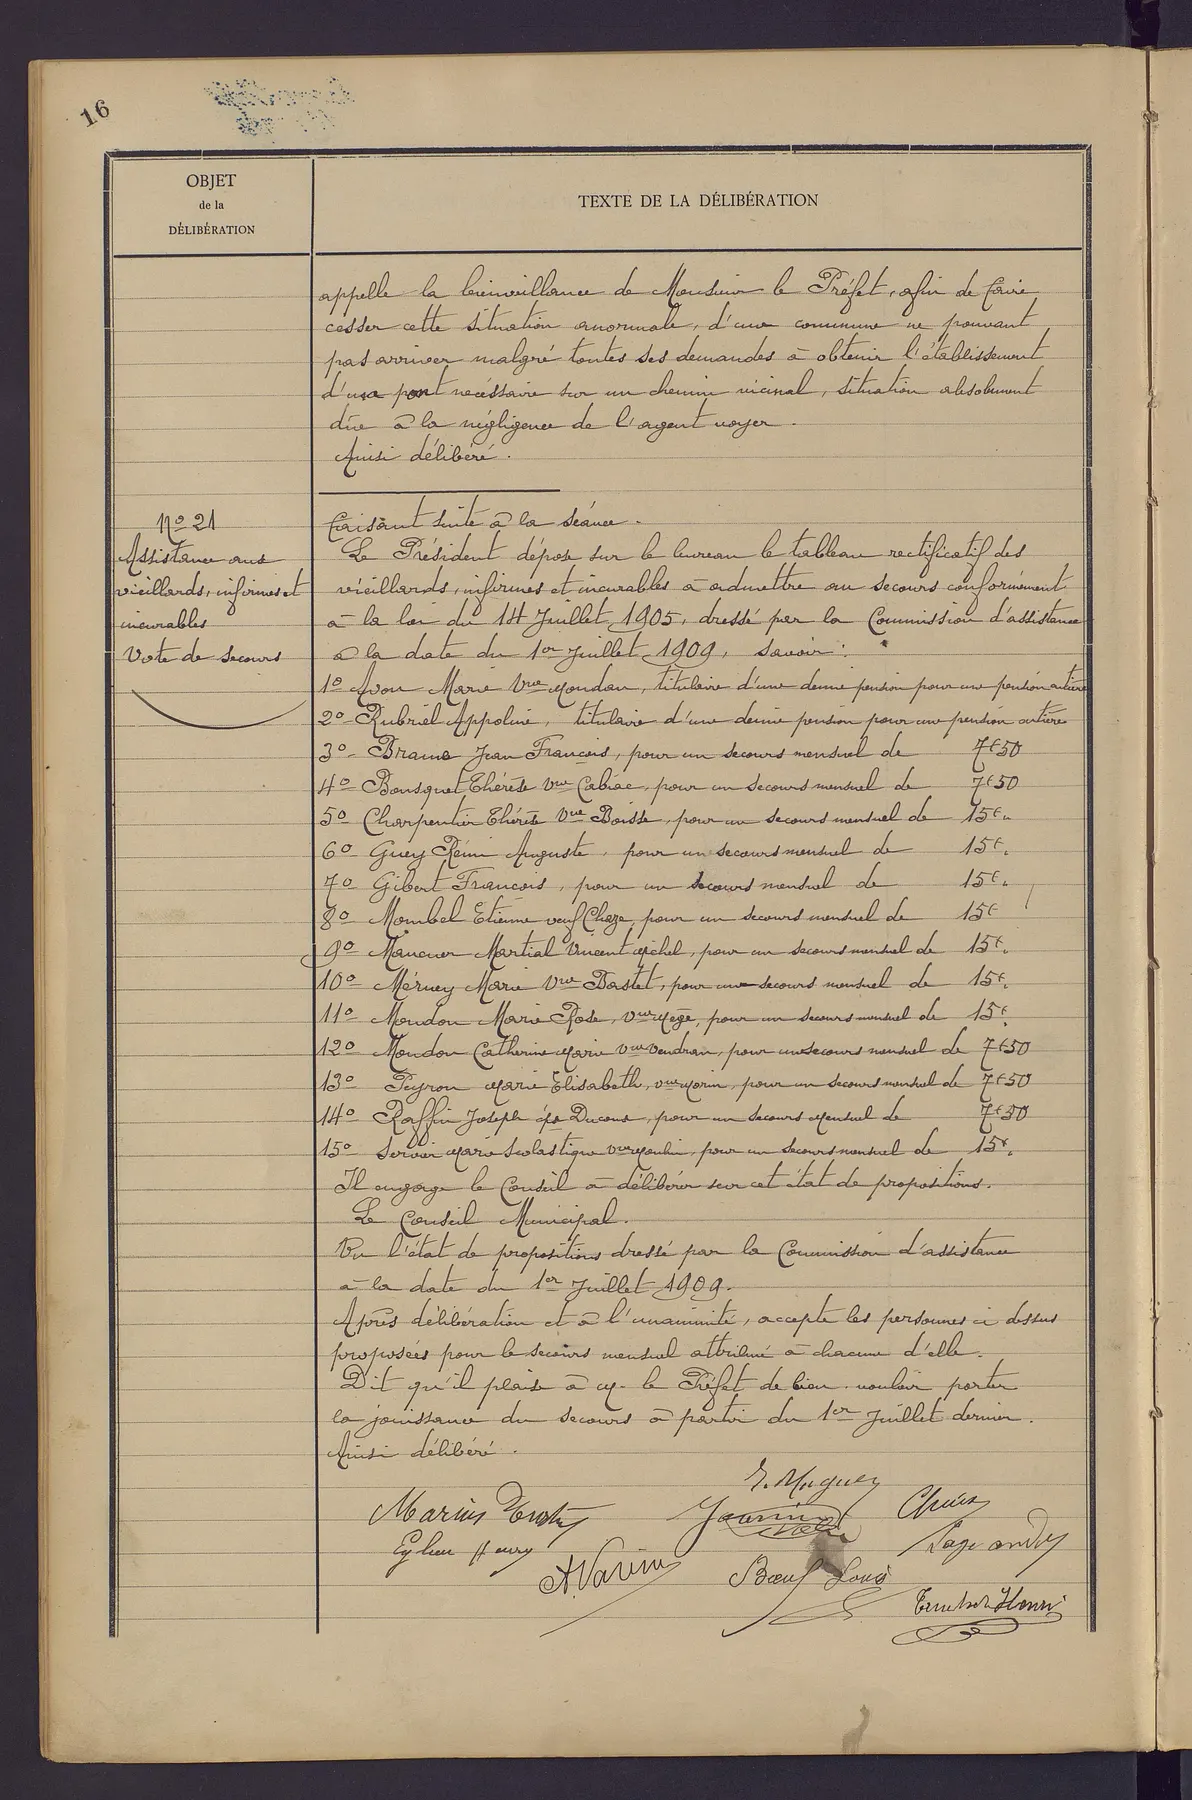 16
OBJET
de la
DÉLIBÉRATION
TEXTE DE LA DÉLIBÉRATION
appelle la bienveillance de Monsieur le Préfet, afin de faire
cesser cette situation anormale, d'une commune ne pouvant
pas arriver malgré toutes ses demandes à obtenir l'établissement
d'un pont necéssaire sur un chemin vicinal, situation absolument
dûe à la négligence de l'agent voyer.
Ainsi délibéré.
No 21
Assistance aux
vieillards, infirmes et
incurables
Vote de secours
Faisant suite à la séance.
Le Président dépose sur le bureau le tableau rectificatif des
vieillards, infirmes et incurables à admettre au secours conformément
à la loi du 14 Juillet 1905, dressé par la Commission d'assistance
à la date du 1er Juillet 1909, savoir:
1o Avon Marie Vve Moudon, titulaire d'une demie pension pour une pension entière
2o Rubriel Appoline, titulaire d'une demie pension pour une pension entière
3o Jean François, pour un secours mensuel de 7f50
4o Bousquet Thérèse Vve Cabiac, pour un secours mensuel de 7f50
5o Charpentier Thérèse Vve Boisse, pour un secours mensuel de 15f.
6o Guey Rémi Auguste, pour un secours mensuel de 15f.
7o Gibert François, pour un secours mensuel de 15f.
8o Mombel Etienne veuf Chaze, pour un secours mensuel de 15f
9o Martial Vincent Michel, pour un secours mensuel de 15f.
10o Marie Vve Bastet, pour un secours mensuel de 15f.
11o Moudon Marie Rose, Vve Mège, pour un secours mensuel de 15f.
12o Moudon Catherine Marie Vve Vendran, pour un secours mensuel de 7f50
13o Peyron Marie Elisabeth, Vve Morin, pour un secours mensuel de 7f50
14o Raffin Joseph, pour un secours mensuel de 7f50
15o Marie Scolastique Vve Moulin, pour un secours mensuel de 15f.
Il engage le Conseil à délibérer sur cet état de propositions.
Le Conseil Municipal.
Vu l'état de propositions dressé par la Commission d'assistance
à la date du 1er Juillet 1909.
Après délibération et à l'unanimité, accepte les personnes ci dessus
proposées pour le secours mensuel attribué à chacune d'elle.
Dit qu'il plaise à M. le Préfet de bien vouloir porter
la jouissance du secours à partir du 1er Juillet dernier.
Ainsi délibéré.
Marius
Henry
A. Varin
Bœuf Louis
Henri